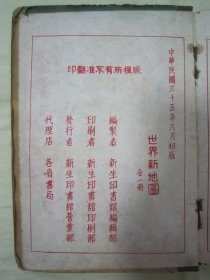 版權所有不准翻印
中華民國三十五年八月初版
世界新地圖
全一冊
編製者 新生印書館編輯部
印刷者 新生印書館印刷部
發行者 新生印書館營業部
代理店 各省書局